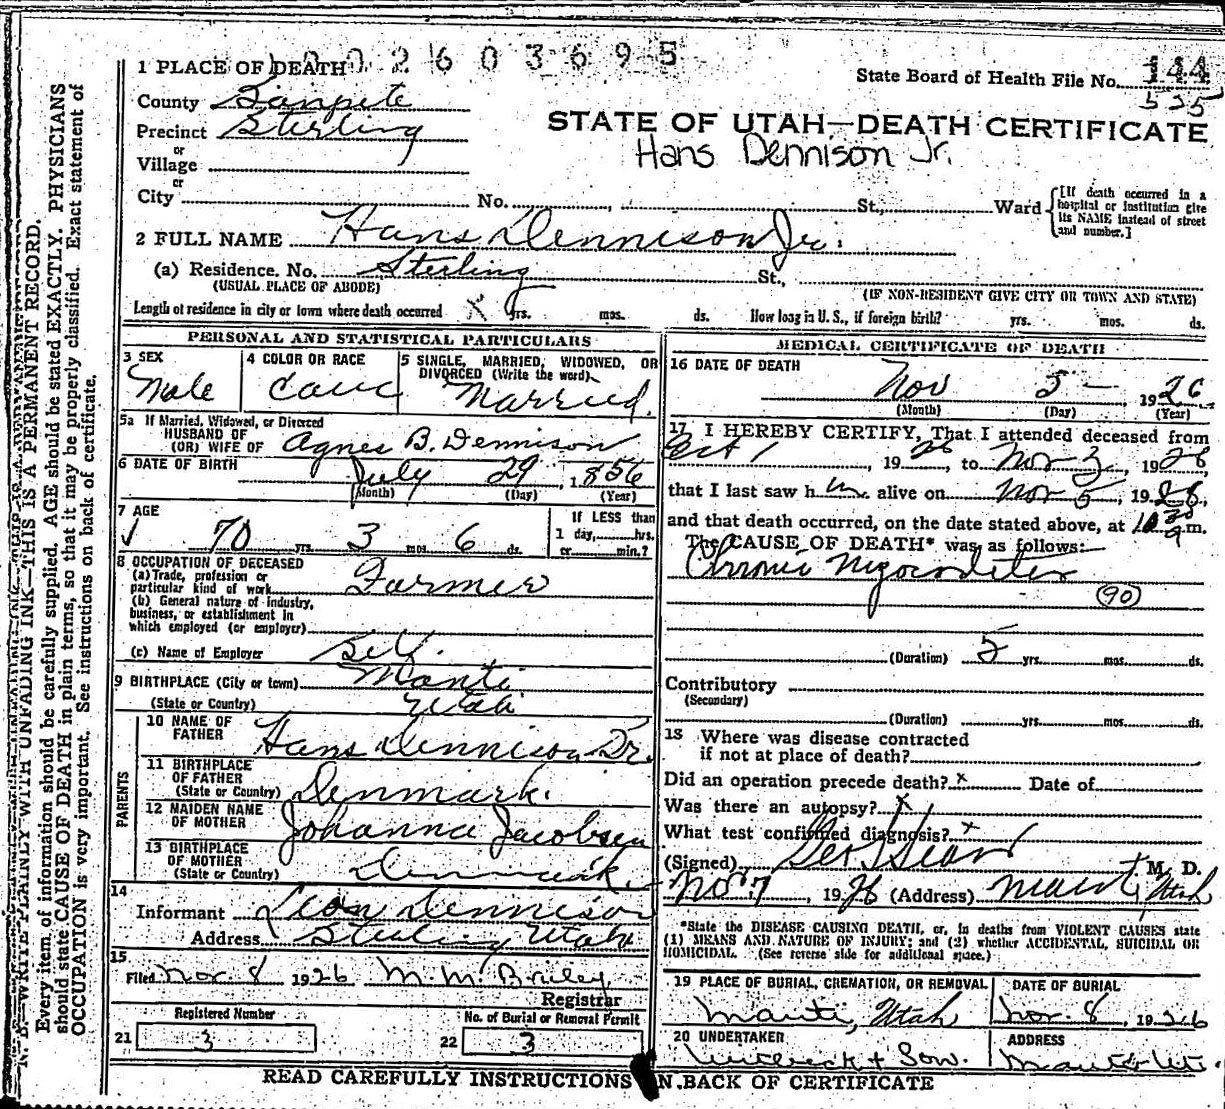 1 PLACE OF DEATH 0 2 6 0 3 6 9 5
State Board of Health File No. 144
535
County Sanpete
Precinct Sterling
or
Village
or
City No. , St., Ward
[If death occurred in a hospital or institution give its NAME instead of street and number.]
STATE OF UTAH—DEATH CERTIFICATE
Hans Dennison Jr.
2 FULL NAME Hans Dennison Jr.
(a) Residence. No. Sterling St.,
(USUAL PLACE OF ABODE)
(IF NON-RESIDENT GIVE CITY OR TOWN AND STATE)
Length of residence in city or town where death occurred x yrs. mos. ds. How long in U. S., if foreign birth? yrs. mos. ds.
PERSONAL AND STATISTICAL PARTICULARS
3 SEX
Male
4 COLOR OR RACE
Cauc
5 SINGLE, MARRIED, WIDOWED, OR DIVORCED (Write the word)
Married.
5a If Married, Widowed, or Divorced
HUSBAND OF
(OR) WIFE OF Agnes B. Dennison
6 DATE OF BIRTH July 29, 1856
(Month) (Day) (Year)
7 AGE
70 yrs. 3 mos. 6 ds.
If LESS than
1 day, hrs.
or min.?
8 OCCUPATION OF DECEASED
(a) Trade, profession or
particular kind of work Farmer
(b) General nature of industry,
business, or establishment in
which employed (or employer)
(c) Name of Employer Self.
9 BIRTHPLACE (City or town) Manti
(State or Country) Utah
PARENTS
10 NAME OF
FATHER Hans Dennison Sr.
11 BIRTHPLACE
OF FATHER
(State or Country) Denmark.
12 MAIDEN NAME
OF MOTHER Johanna Jacobsen
13 BIRTHPLACE
OF MOTHER
(State or Country) Denmark.
14
Informant Leon Dennison
Address Sterling Utah
15
Filed Nov. 8 1926 M. M. Briley
Registrar
Registered Number
21 3
No. of Burial or Removal Permit
22 3
MEDICAL CERTIFICATE OF DEATH
16 DATE OF DEATH
Nov 5 — 1926
(Month) (Day) (Year)
17 I HEREBY CERTIFY, That I attended deceased from
Oct 1, 1926, to Nov 3, 1926,
that I last saw him alive on Nov 5, 1926,
and that death occurred, on the date stated above, at 10 30 a m.
The CAUSE OF DEATH* was as follows:
Chronic Myocarditis
90
(Duration) 5 yrs. mos. ds.
Contributory
(Secondary)
(Duration) yrs. mos. ds.
18 Where was disease contracted
if not at place of death?
Did an operation precede death? x Date of
Was there an autopsy? x
What test confirmed diagnosis? x
(Signed) M. D.
Nov 7, 1926 (Address) Manti, Utah
*State the DISEASE CAUSING DEATH, or, in deaths from VIOLENT CAUSES state
(1) MEANS AND NATURE OF INJURY; and (2) whether ACCIDENTAL, SUICIDAL OR
HOMICIDAL. (See reverse side for additional space.)
19 PLACE OF BURIAL, CREMATION, OR REMOVAL
Manti, Utah
DATE OF BURIAL
Nov. 8, 1926
20 UNDERTAKER
& Son.
ADDRESS
Manti Ut.
READ CAREFULLY INSTRUCTIONS ON BACK OF CERTIFICATE
N. B.—WRITE PLAINLY WITH UNFADING INK—THIS IS A PERMANENT RECORD.
Every item of information should be carefully supplied. AGE should be stated EXACTLY. PHYSICIANS
should state CAUSE OF DEATH in plain terms, so that it may be properly classified. Exact statement of
OCCUPATION is very important. See instructions on back of certificate.